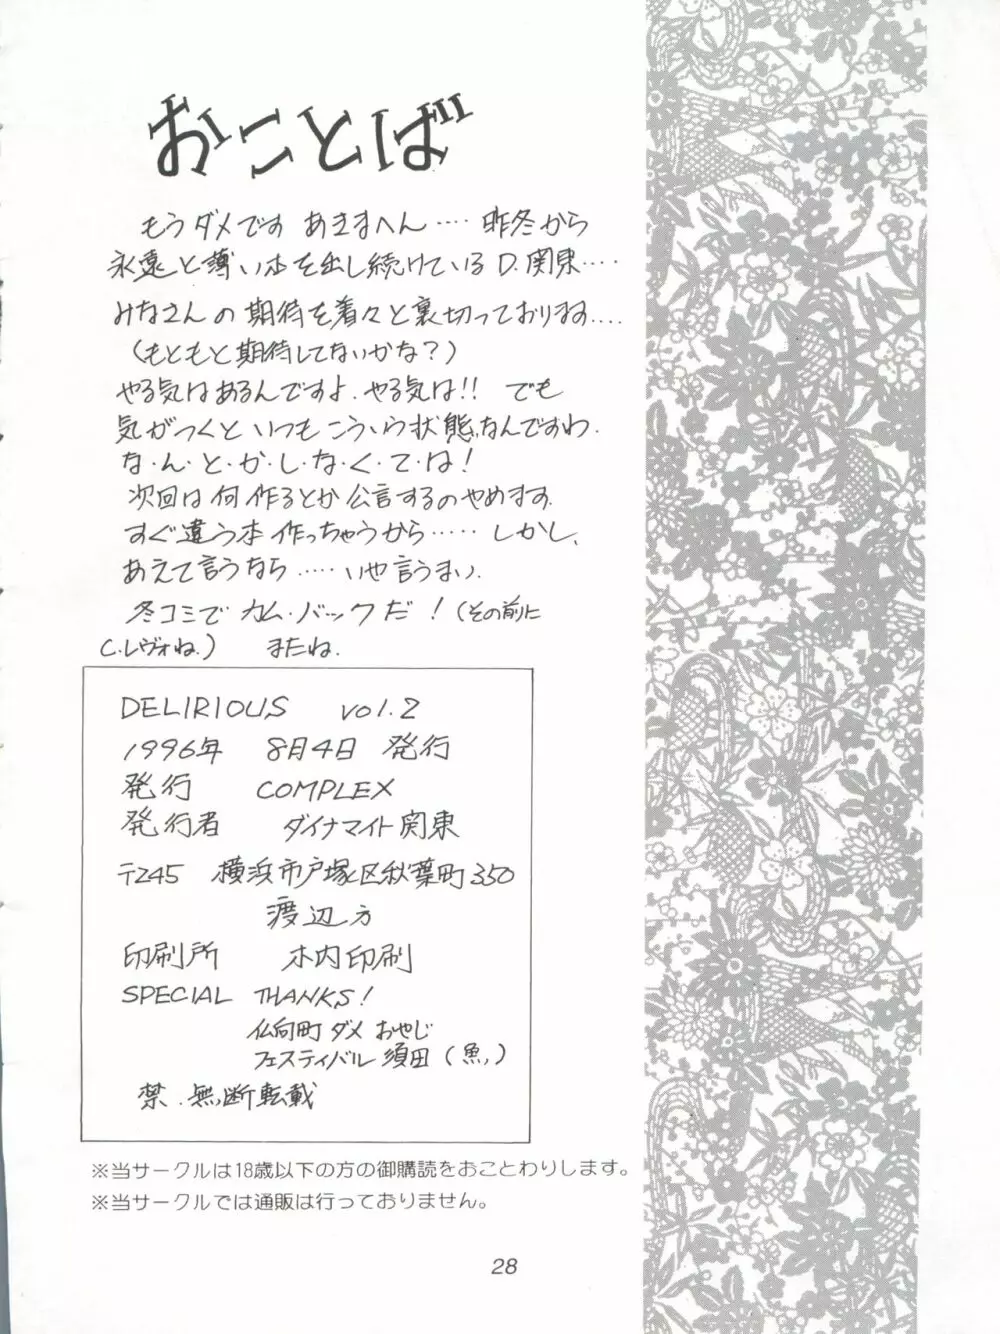 おことば
もうダメです あきまへん‥‥ 昨冬から
永遠と薄い本を出し続けているD.関東‥‥
みなさんの期待を着々と裏切っております‥‥
(もともと期待してないかな?)
やる気はあるんですよ.やる気は!! でも
気がつくといつもこういう状態なんですわ.
な・ん・と・か・し・な・く・て・は!
次回は何作るとか公言するのやめます.
すぐ違う本作っちゃうから‥‥‥ しかし、
あえて言うなら‥‥‥いや言うまい.
冬コミでカム・バックだ!(その前に
C.レヴォね.) またね.
DELIRIOUS vol.2
1996年 8月4日 発行
発行 COMPLEX
発行者 ダイナマイト関東
〒245 横浜市戸塚区秋葉町350
渡辺方
印刷所 木内印刷
SPECIAL THANKS!
仏向町 ダメ おやじ
フェスティバル 須田 (魚)
禁.無断転載
※当サークルは18歳以下の方の御購読をおことわりします。
※当サークルでは通販は行っておりません。
28